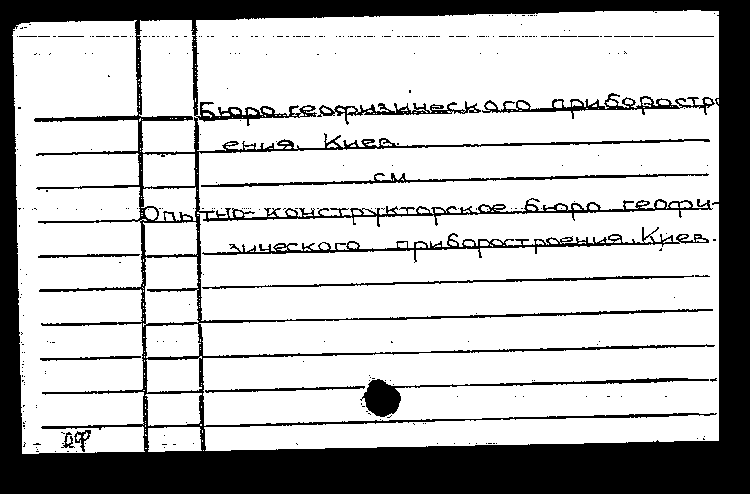 Бюро геофизического приборостро
ения. Киев
см
Опытно-конструкторское бюро геофи-
зического приборостроения. Киев.
ДФ